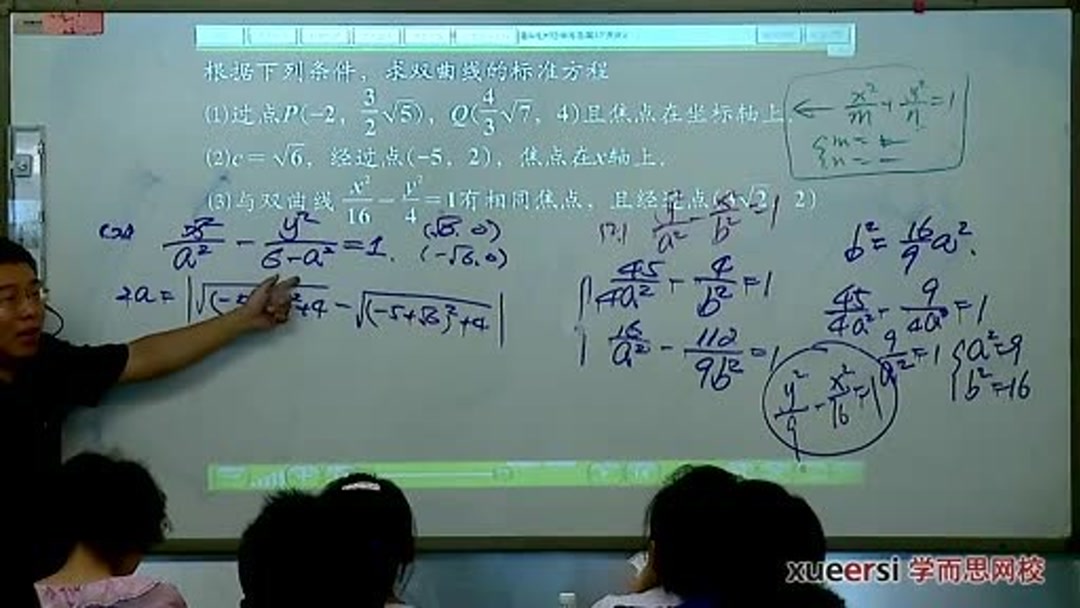 根据下列条件，求双曲线的标准方程
(1)过点P(-2, 3/2 √5), Q(4/3 √7, 4)且焦点在坐标轴上.
(2)c=√6, 经过点(-5, 2), 焦点在x轴上.
(3)与双曲线 x²/16 - y²/4 =1有相同焦点, 且经过点( √2, 2)
← x²/m + y²/n = 1
{ m = ←
{ n = −
x²/a² - y²/(6-a²) = 1. (√6, 0)
(-√6, 0)
2a = |√( )²+4 - √(-5+√6)²+4|
y²/a² - x²/b² = 1
45/4a² - 4/b² = 1
16/a² - 112/9b² = 1
b² = 16/9 a².
45/4a² - 9/4a² = 1
9/a² = 1
{ a² = 9
{ b² = 16
y²/9 - x²/16 = 1
xueersi 学而思网校